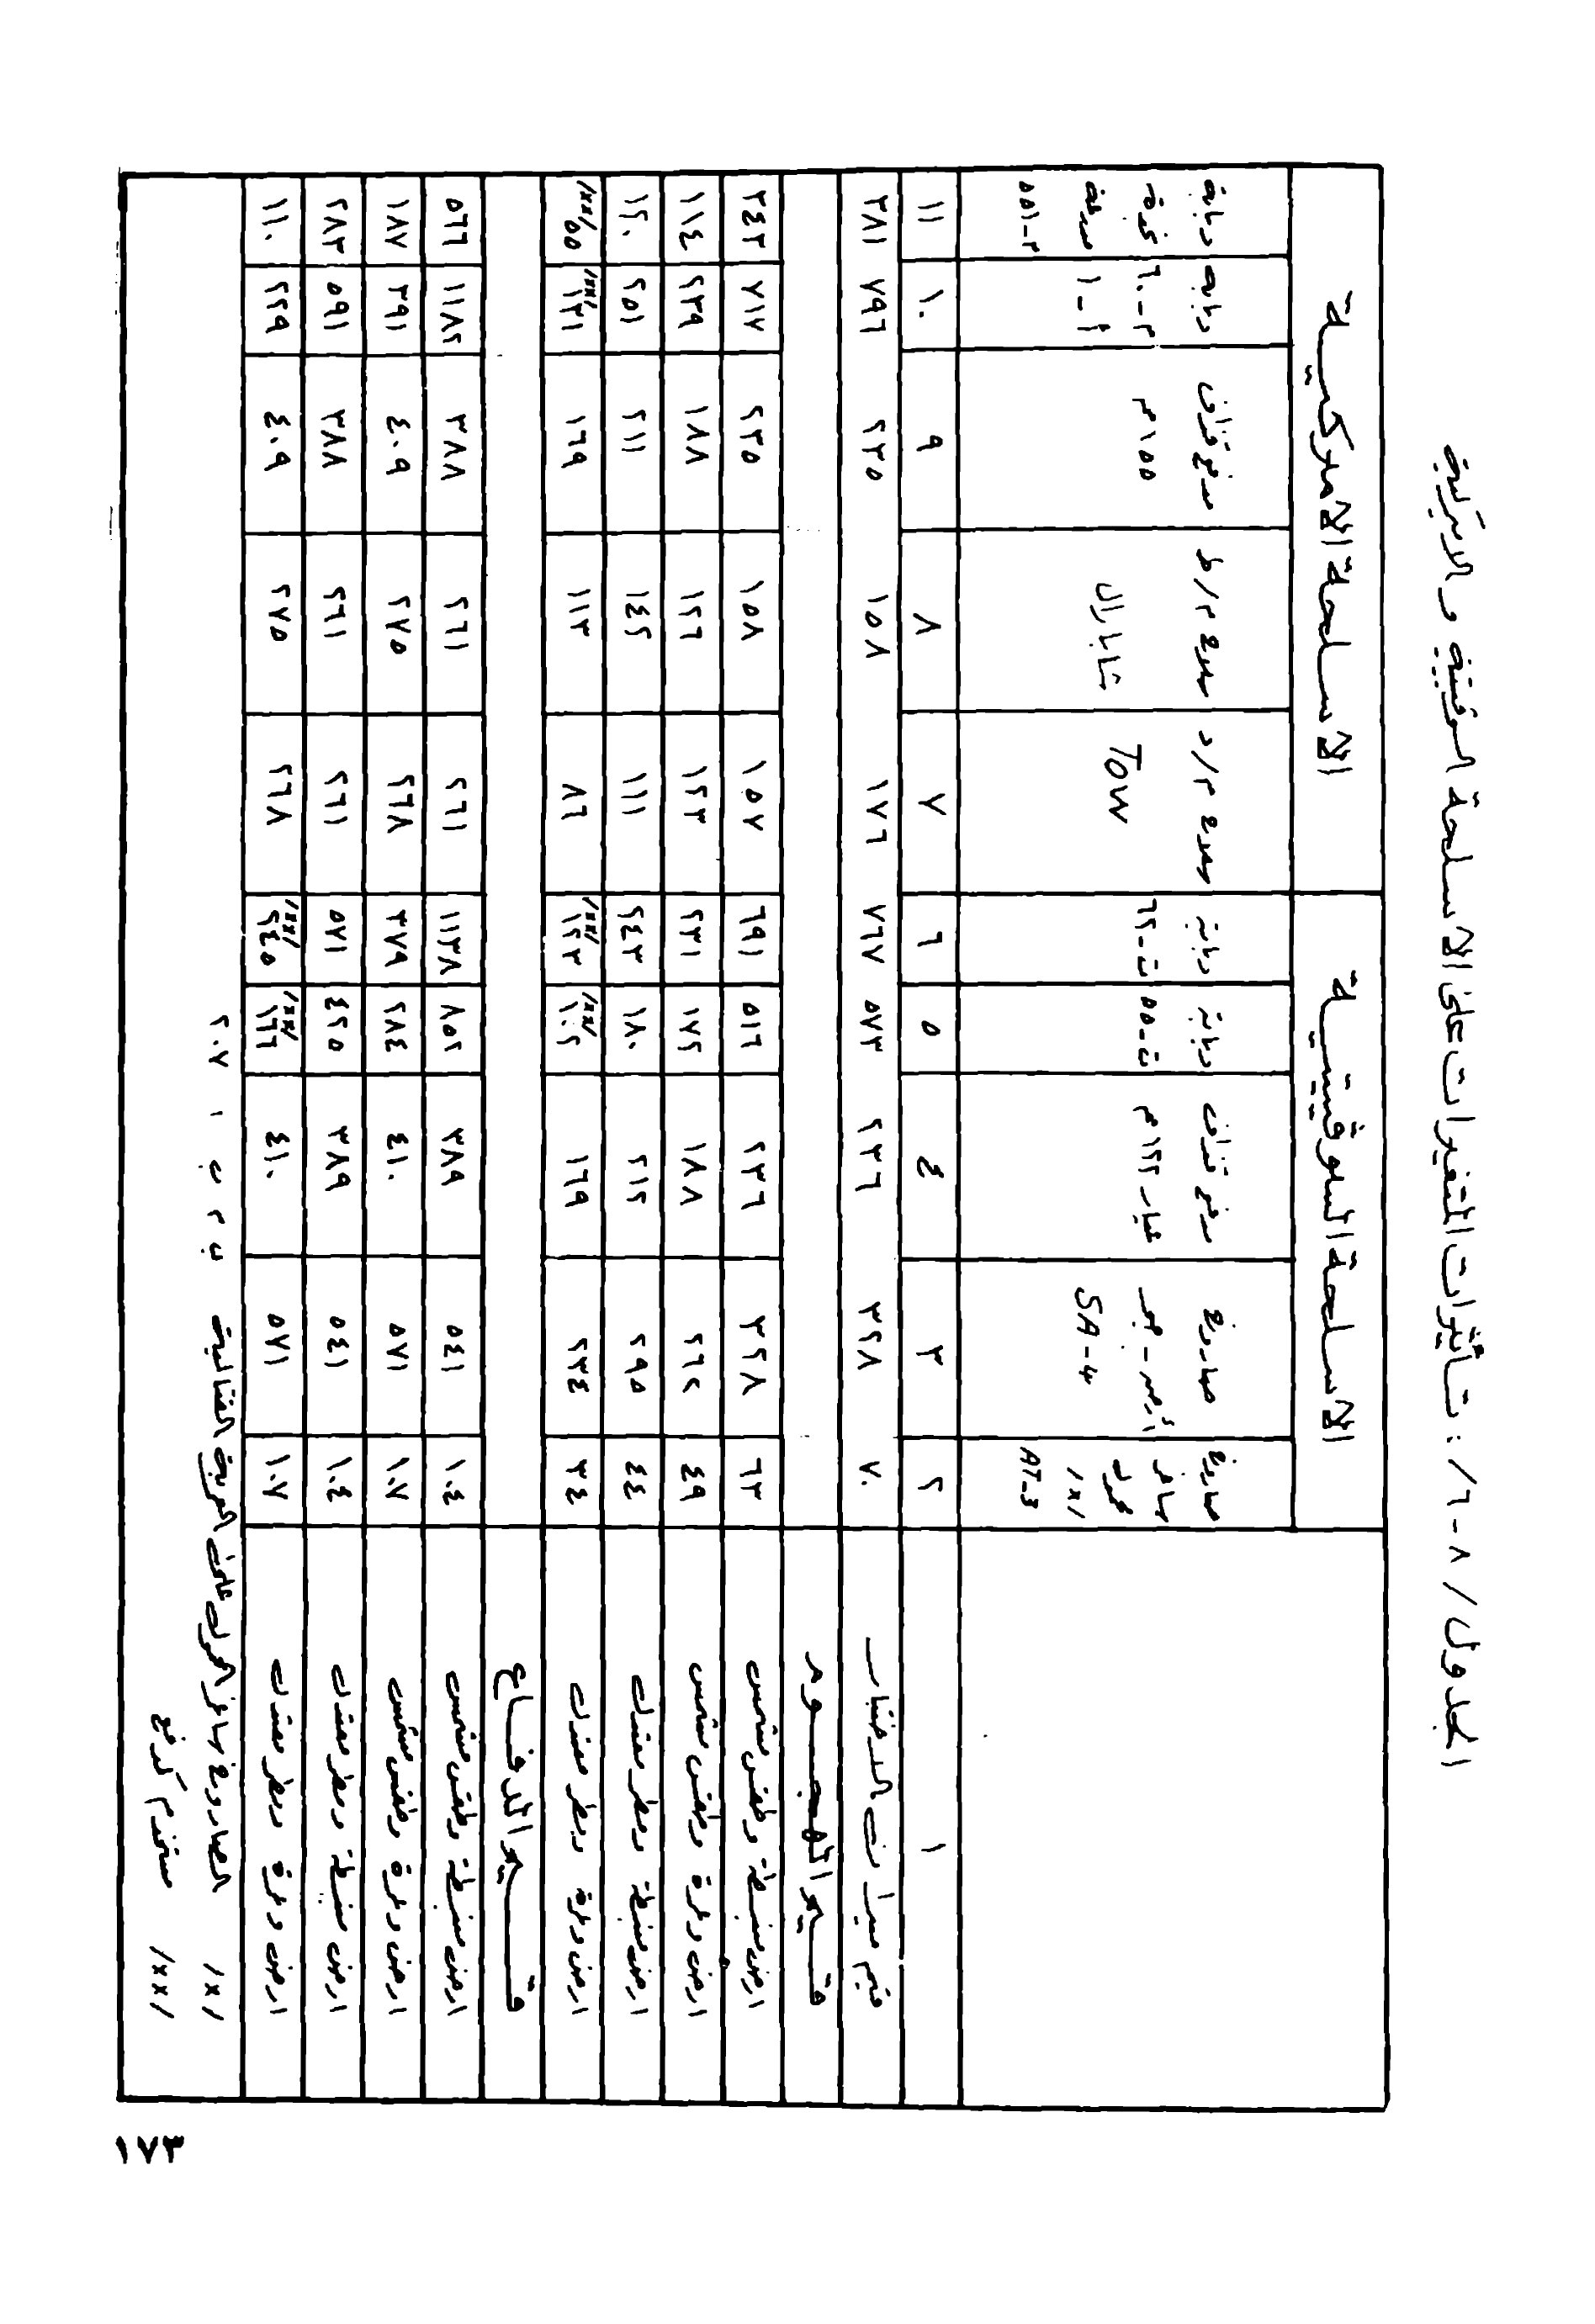 الجدول /٨-٦/: تأثيرات المتغيرات على الاسلحة السوفيتية والاميركية
الاسلحة السوفيتية الاسلحة الاميركية
صاروخ ساغر محمول /x/ AT-3
صاروخ أرض-جو SA-4
مدفع قذاف عيار ١٢٢م
دبابة ت-٥٥
دبابة ت-٦٢
صاروخ م/د TOW
صاروخ م/ط شاباران
مدفع قذاف ١٥٥م
دبابة م-٦٠ أ-١
دبابة مدرعة م-٥٥١
١ ٢ ٣ ٤ ٥ ٦ ٧ ٨ ٩ ١٠ ١١
قيم ميدان الاختبار ٧٠ ٣٢٨ ٢٣٦ ٥٧٣ ٧٦٧ ١٧٦ ١٥٨ ٢٣٥ ٧٩٦ ٣٨١
قيم الهجوم
ارض منبسطة وطقس مشمس ٦٣ ٣٢٨ ٢٣٦ ٥١٦ ٦٩١ ١٥٧ ١٥٨ ٢٣٥ ٧١٧ ٣٤٣
ارض وعرة وطقس مشمس ٤٩ ٢٦٢ ١٨٨ ١٧٢ ٢٣١ ١٢٣ ١٢٦ ١٨٨ ٢٣٩ ١١٤
ارض منبسطة ومطر معتدل ٤٤ ٢٩٥ ٢١٢ ١٨٠ ٢٤٣ ١١١ ١٤٢ ٢١١ ٢٥١ ١٢٠
ارض وعرة ومطر معتدل ٣٤ ٢٣٤ ١٦٩ /xx/١٠٢ /xx/١٢٣ ٨٦ ١١٣ ١٦٩ /xx/١٣١ /xx/٥٥
قيم الدفاع
ارض منبسطة وطقس مشمس ١٠٤ ٥٤١ ٣٨٩ ٨٥٢ ١١٣٨ ٢٦١ ٢٦١ ٣٨٨ ١١٨٢ ٥٦٦
ارض وعرة وطقس مشمس ١٠٧ ٥٧١ ٤١٠ ٢٨٤ ٣٧٩ ٢٦٨ ٢٧٥ ٤٠٩ ٣٩١ ١٨٧
ارض منبسطة ومطر معتدل ١٠٤ ٥٤١ ٣٨٩ ٤٢٥ ٥٧١ ٢٦١ ٢٦١ ٣٨٨ ٥٩١ ٢٨٣
ارض وعرة ومطر معتدل ١٠٧ ٥٧١ ٤١٠ /xx/١٦٦ /xx/٢٤٥ ٢٦٨ ٢٧٥ ٤٠٩ ٢٢٩ ١١٠
/x/ الصاروخ ساغر المحمول على العربة القتالية ب م ب ١ ٢٠٧
/xx/ مستخدم كمدفع
١٧٣